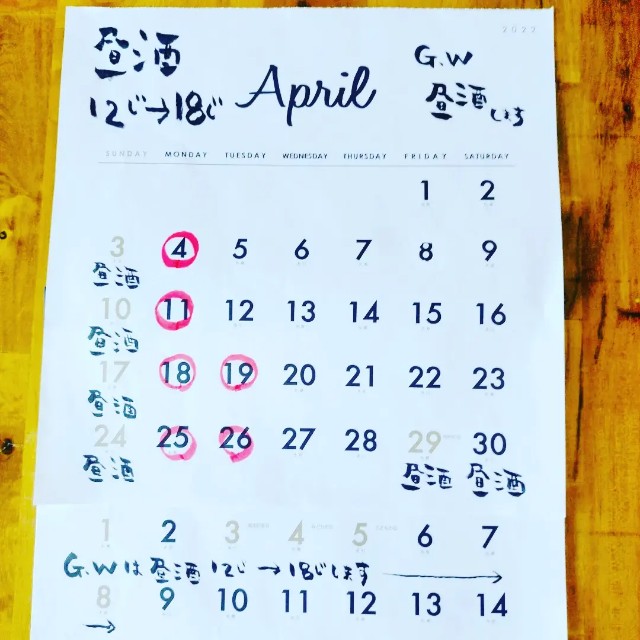 2022
昼酒
12じ→18じ
April
G.W
昼酒
します
SUNDAY MONDAY TUESDAY WEDNESDAY THURSDAY FRIDAY SATURDAY
1 2
3 4 5 6 7 8 9
昼酒
10 11 12 13 14 15 16
昼酒
17 18 19 20 21 22 23
昼酒
24 25 26 27 28 29 30
昼酒 昼酒 昼酒
1 2 3 4 5 6 7
G.Wは昼酒12じ→18じします →
8 9 10 11 12 13 14
→